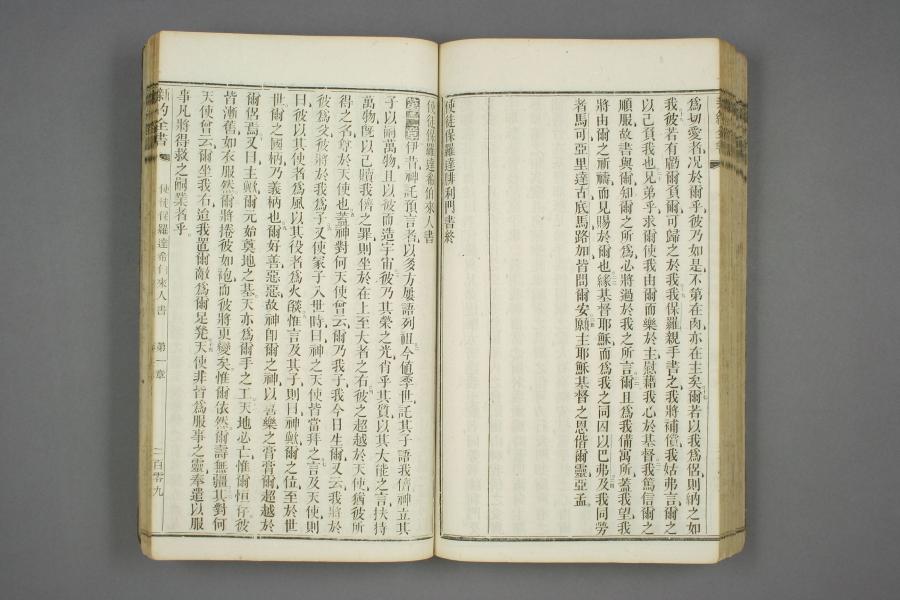 為切愛者況於爾乎彼乃如是不第在肉亦在主矣爾若以我為侶則納之如
我彼若有虧爾負爾可歸之於我我保羅親手書之我將補償我姑弗言爾之
以己負我也兄弟乎求爾使我由爾而樂於主慰藉我心於基督我篤信爾之
順服故書與爾知爾之所為必將過於我之所言爾且為我備寓所蓋我望我
將由爾之祈禱而見賜於爾也緣基督耶穌而為我之同囚以巴弗及我同勞
者馬可亞里達古底馬路加皆問爾安願主耶穌基督之恩偕爾靈亞孟
使徒保羅達腓利門書終
使徒保羅達希伯來人書
伊昔神託預言者以多方屢語列祖今值季世託其子語我儕神立其
子以嗣萬物且以彼而造宇宙彼乃其榮之光肖乎其質以其大能之言扶持
萬物既以己贖我儕之罪則坐於在上至大者之右彼之超越於天使猶彼所
得之名奪於天使也蓋神對何天使曾云爾乃我子我今日生爾又云我將於
彼為父彼將於我為子又使冢子入世時曰神之天使皆當拜之言及天使則
曰彼以其使者為風以其役者為火燄惟言及其子則曰神歟爾之位至於世
世爾之國柄乃義柄也爾好善惡惡故神即爾之神以喜樂之膏膏爾超越於
爾侶焉又曰主歟爾元始奠地之基天亦為爾手之工天地必亡惟爾恒存彼
皆漸舊如衣服然爾將捲彼如袍而彼將更變矣惟爾依然爾壽無疆其對何
天使曾云爾坐我右迨我置爾敵為爾足凳天使非皆為服事之靈奉遣以服
事凡將得救之嗣業者乎
新約全書 使徒保羅達希伯來人書 第一章 二百零九